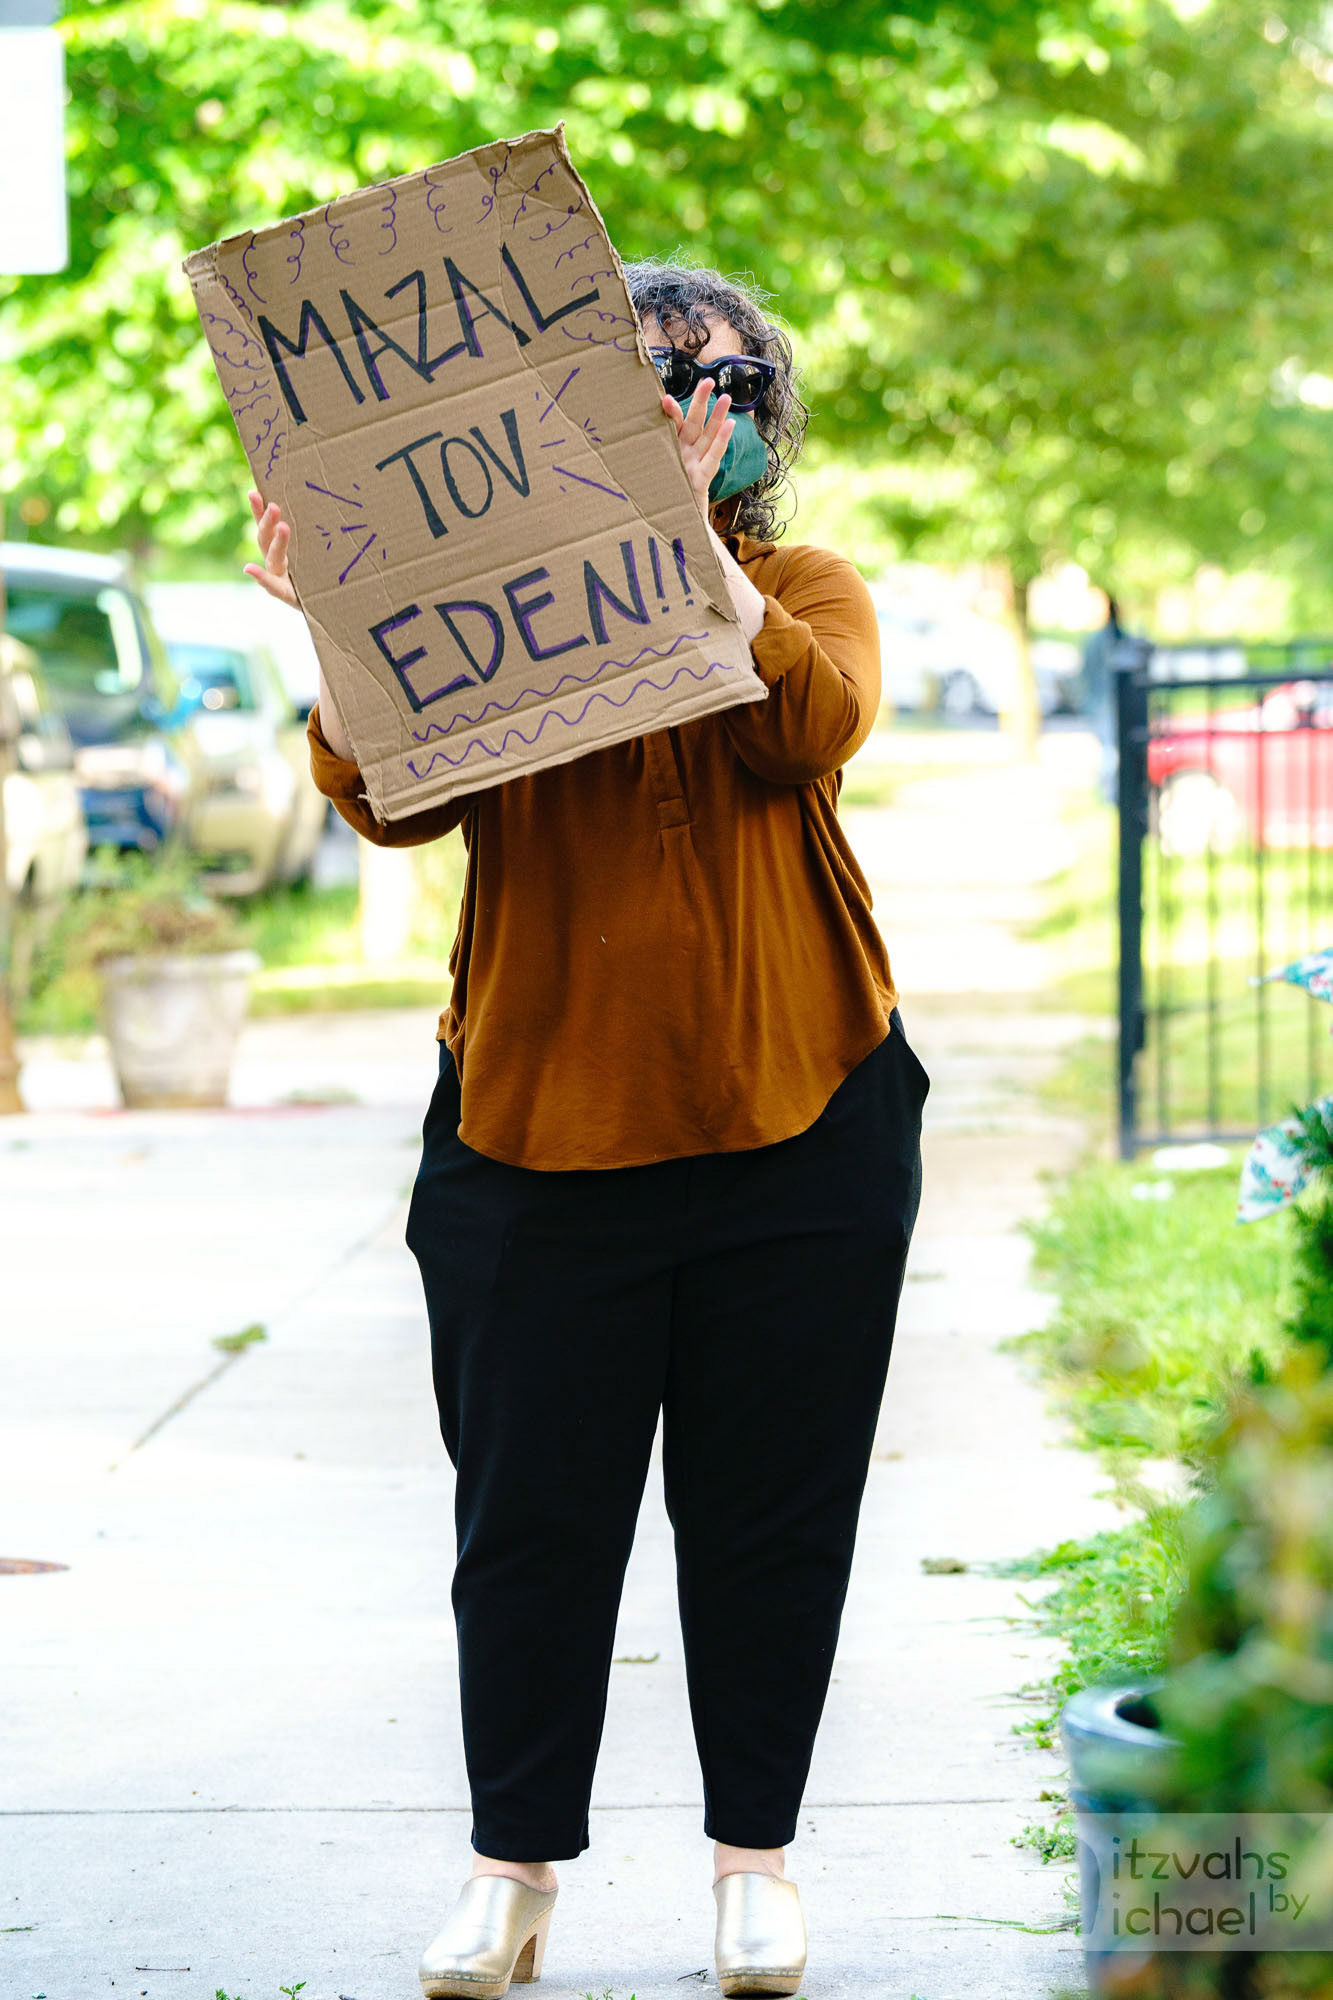 MAZAL
TOV
EDEN!!
itzvahs
by
ichael